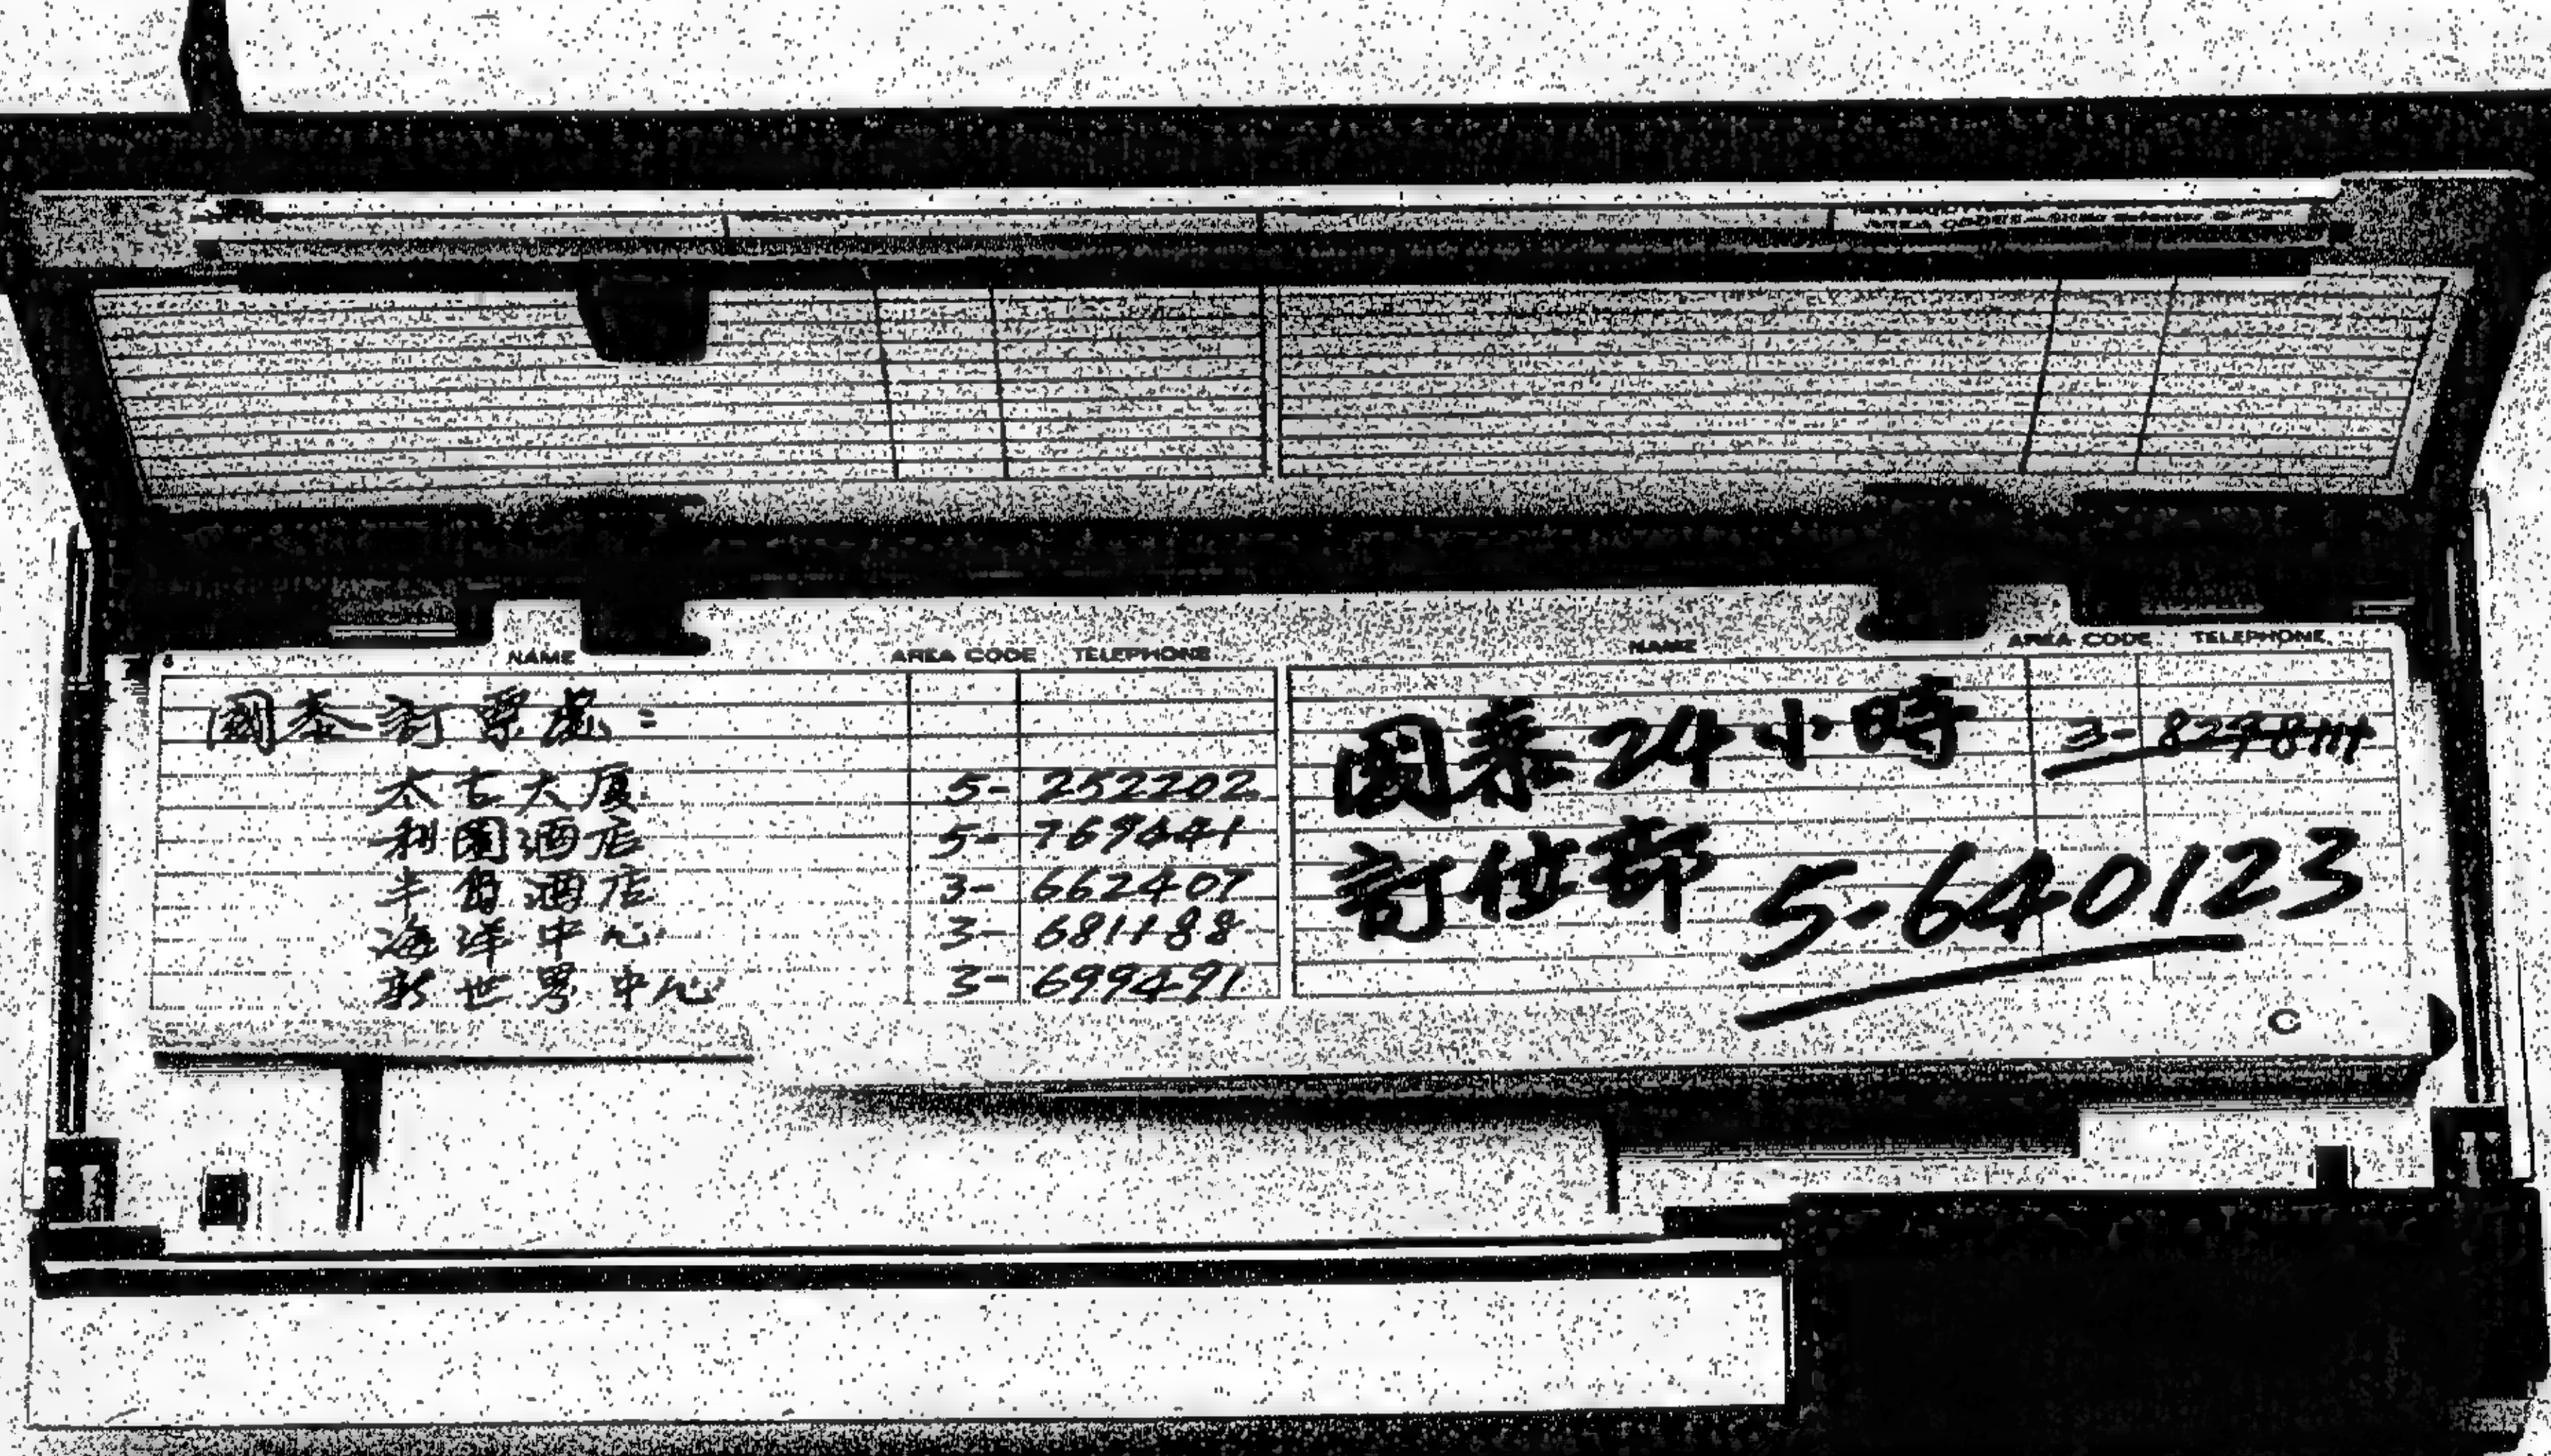 NAME AREA CODE TELEPHONE
國泰訂票處：
太古大厦 5- 252202
利園酒店 5- 769441
半島酒店 3- 662407
海洋中心 3- 681188
新世界中心 3- 699491
NAME AREA CODE TELEPHONE
國泰24小時 3-
訂位部 5-640123
C